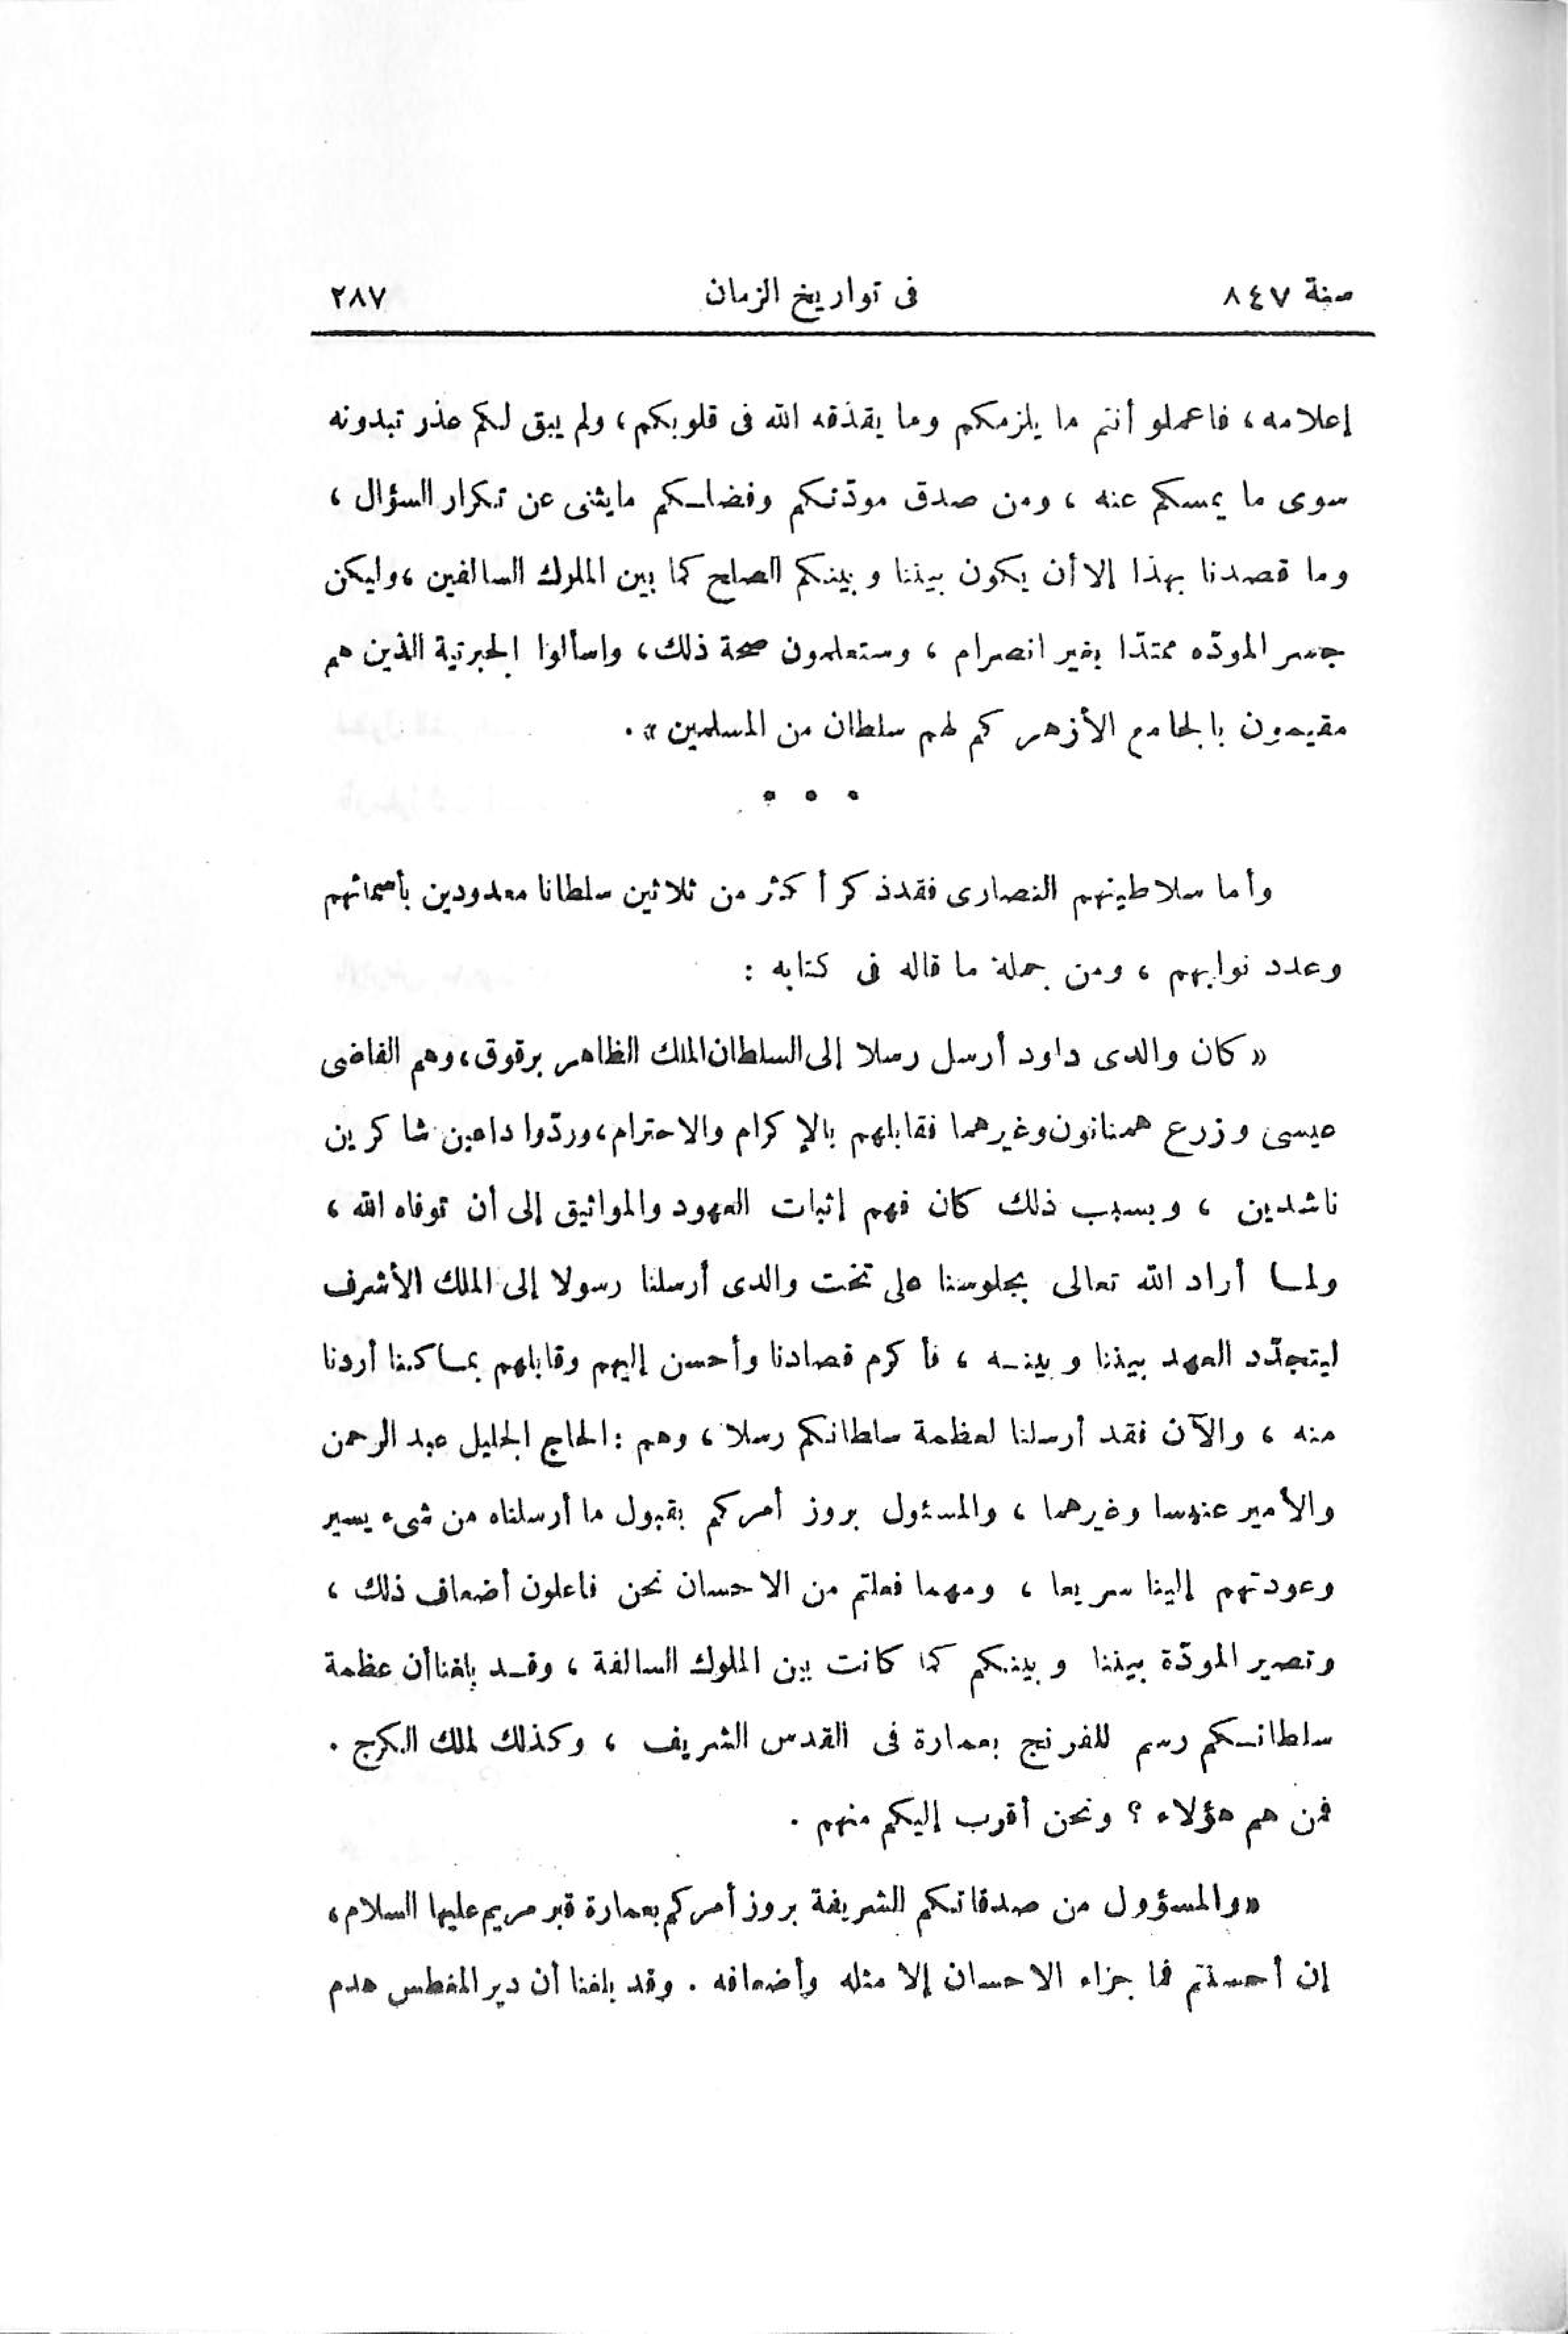 سنة ٨٤٧
فى تواريخ الزمان
٢٨٧
إعلامه ، فاعملو أنتم ما يلزمكم وما يقذفه الله فى قلوبكم ، ولم يبق لكم عذر تبدونه
سوى ما يمسكم عنه ، ومن صدق مودّتكم وفضلكم مايثنى عن تكرار السؤال ،
وما قصدنا بهذا إلا أن يكون بيننا وبينكم الصلح كما بين الملوك السالفين ، وليكن
جسر المودّه ممتدّا بغير انصرام ، وستعلمون صحة ذلك ، واسألوا الجبرتية الذين هم
مقيمون بالجامع الأزهر كم لهم سلطان من المسلمين » .
• • •
وأما سلاطينهم النصارى فقد ذكر أكثر من ثلاثين سلطانا معدودين بأسمائهم
وعدد نوابهم ، ومن جملة ما قاله فى كتابه :
« كان والدى داود أرسل رسلا إلى السلطان الملك الظاهر برقوق ، وهم القاضى
عيسى وزرع همنانون وغيرهما فقابلهم بالإكرام والاحترام ، وردّوا داعين شاكرين
ناشدين ، وبسبب ذلك كان فهم إثبات العهود والمواثيق إلى أن توفاه الله ،
ولما أراد الله تعالى بجلوسنا على تخت والدى أرسلنا رسولا إلى الملك الأشرف
ليتجدّد العهد بيننا وبينه ، فأكرم قصادنا وأحسن إليهم وقابلهم بما كنا أردنا
منه ، والآن فقد أرسلنا لعظمة سلطانكم رسلا ، وهم : الحاج الجليل عبد الرحمن
والأمير عندسا وغيرهما ، والمسئول بروز أمركم بقبول ما أرسلناه من شىء يسير
وعودتهم إلينا سريعا ، ومهما فعلتم من الاحسان نحن فاعلون أضعاف ذلك ،
وتصير المودّة بيننا وبينكم كما كانت بين الملوك السالفة ، وقد بلغنا أن عظمة
سلطانكم رسم للفرنج بعمارة فى القدس الشريف ، وكذلك لملك الكرج .
فمن هم هؤلاء ؟ ونحن أقرب إليكم منهم .
«والمسؤول من صدقاتكم الشريفة بروز أمركم بعمارة قبر مريم عليها السلام ،
إن أحسنتم فما جزاء الاحسان إلا مثله وأضعافه . وقد بلغنا أن دير المغطس هدم